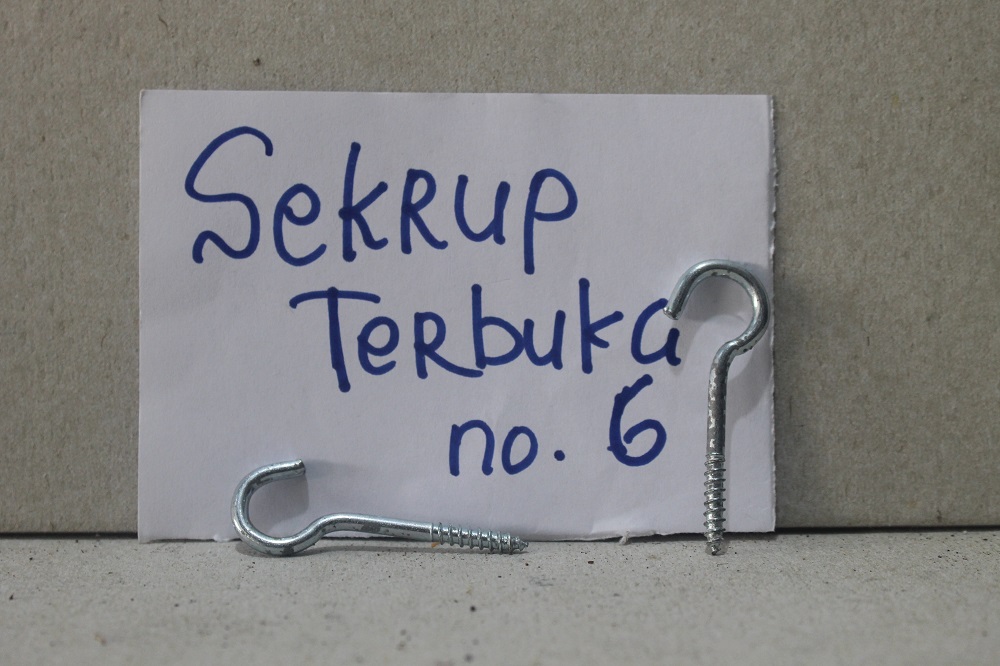 Sekrup
Terbuka
no. 6